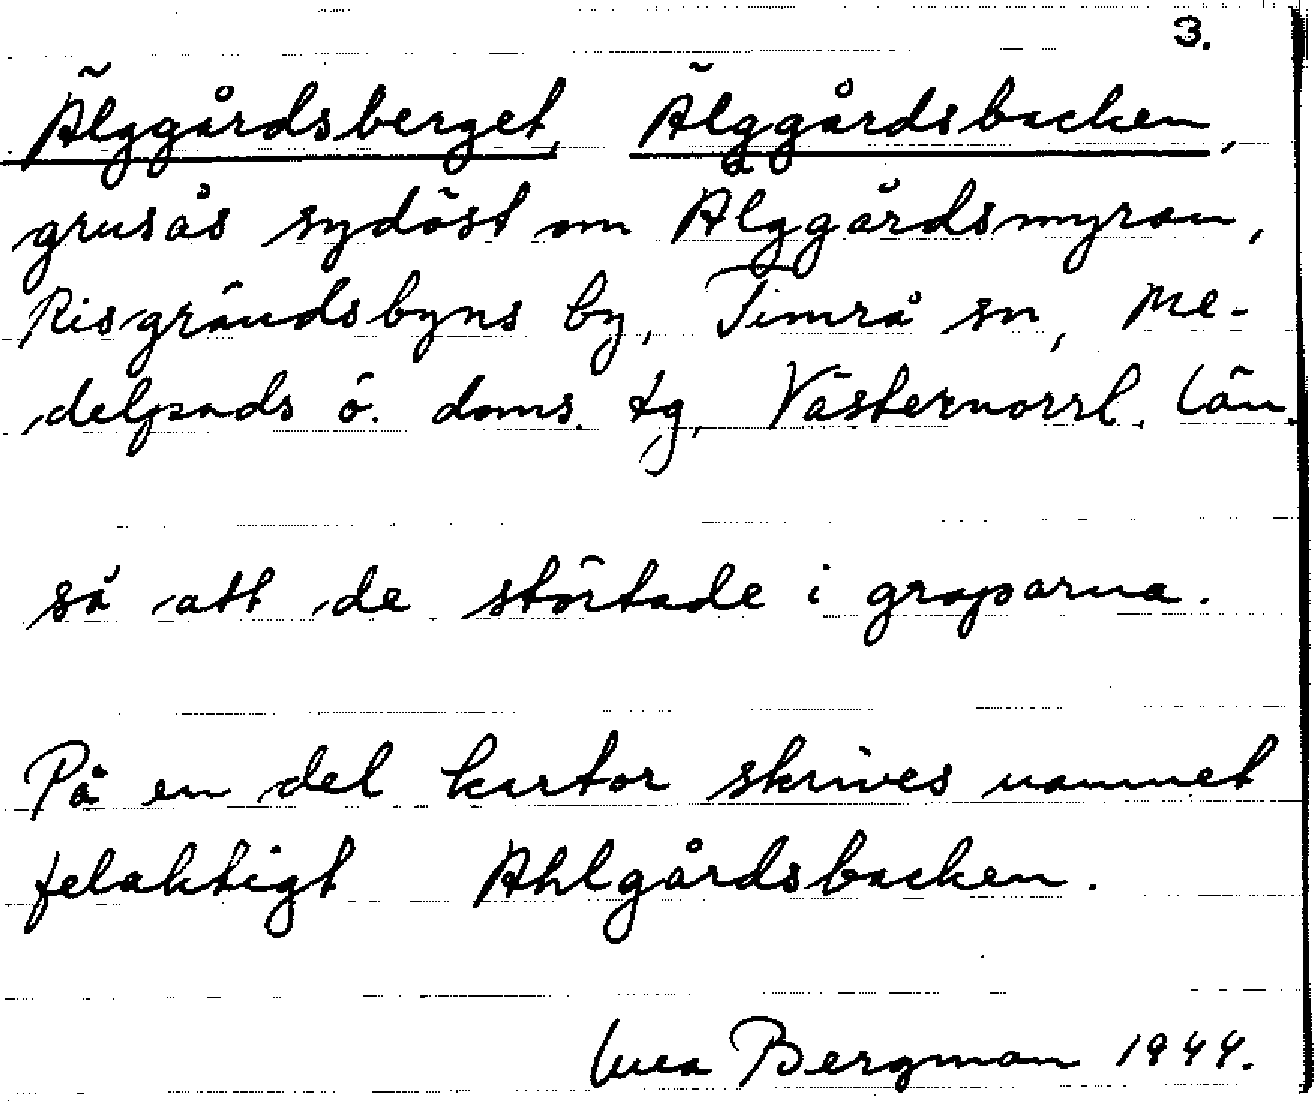 3.
Älggårdsberget, Älggårdsbacken,
grusås sydöst om Älggårdsmyran,
Risgrändsbyns by, Timrå sn, Me-
delpads ö. doms. tg, Västernorrl. län.
så att de störtade i groparna.
På en del kartor skrives namnet
felaktigt Ahlgårdsbacken.
Bergman 1944.